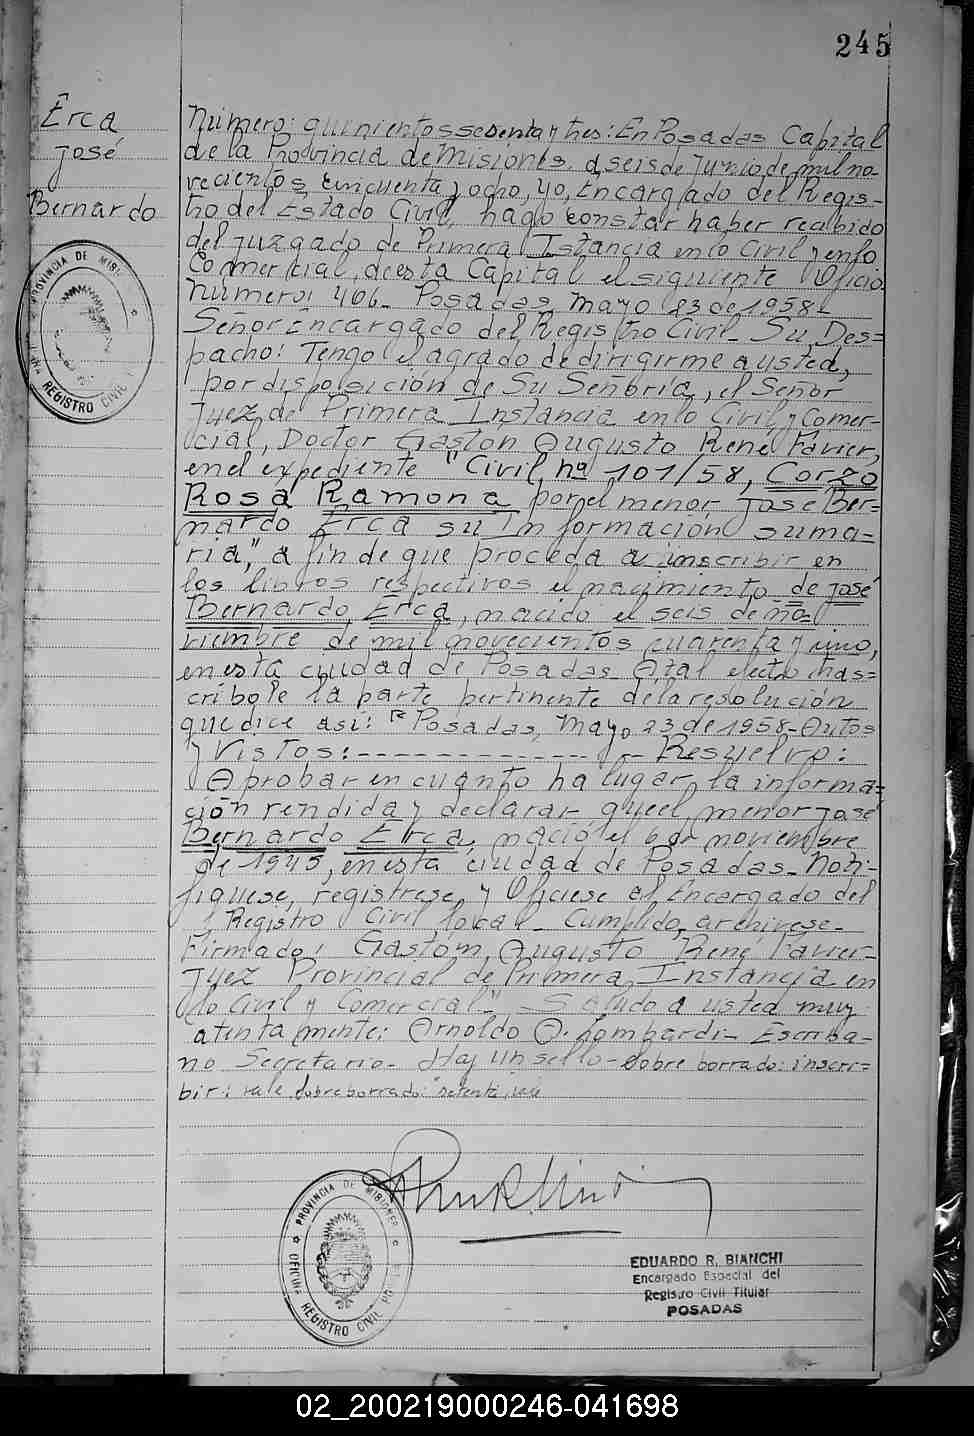 245
Erca
José
Bernardo
Número: quinientos sesenta y tres: En Posadas Capital
de la Provincia de Misiones, a seis de Junio de mil no-
vecientos cincuenta y ocho, yo, Encargado del Regis-
tro del Estado Civil, hago constar haber recibido
del Juzgado de Primera Istancia en lo Civil y en lo
Comercial, de esta Capital el siguiente Oficio
Número: 406- Posadas, Mayo 23 de 1958-
Señor Encargado del Registro Civil- Su Des=
pacho: Tengo el agrado de dirigirme a usted,
por disposición de Su Señoria, el Señor
Juez de Primera Instancia en lo Civil y Comer-
cial, Doctor Gaston Augusto René Favier,
en el expediente "Civil nº 101/58, Corzo
Rosa Ramona por el menor José Ber=
nardo Erca su Información suma=
ria", a fin de que proceda a inscribir en
los libros respectivos el nacimiento de José
Bernardo Erca, nacido el seis de no=
viembre de mil novecientos cuarenta y uno,
en esta ciudad de Posadas. A tal efecto tras=
cribole la parte pertinente de la resolución
que dice así: "Posadas, Mayo 23 de 1958- Autos
y Vistos: - - - - - - - - - - - - - - Resuelvo:
Aprobar en cuanto ha lugar la informa=
ción rendida y declarar que el menor José
Bernardo Erca, nació el 6 de noviembre
de 1945, en esta ciudad de Posadas- Noti-
fiquese, registrese y Oficiese al Encargado del
Registro Civil local- Cumplido, archivese-
Firmado: Gastom Augusto René Favier-
Juez Provincial de Primera Instancia en
lo Civil y Comercial"- Saludo a usted muy
atentamente: Arnoldo A. Lombardi- Escriba-
no Secretario- Hay un sello- Sobre borrado: inscri=
bir: vale. Sobre borrado:
PROVINCIA DE MISIONES
REGISTRO CIVIL
PROVINCIA DE MISIONES
OFICINA REGISTRO CIVIL
EDUARDO R. BIANCHI
Encargado Especial del
Registro Civil Titular
POSADAS
02_200219000246-041698